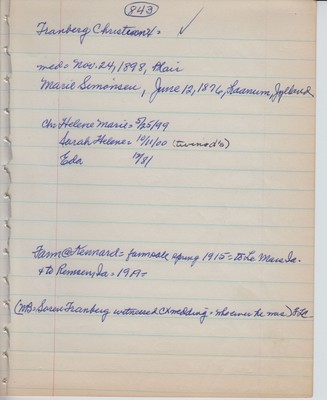 843
Franberg Christian =
med = Nov. 24, 1898, Blair
Marie Simonsen, June 12, 1876, Jylland
Ch = Helene Marie = 5/25/99
Sarah Helene = 10/11/00
Eda
Farm @ Kennard = farm sale spring 1915 = to Le Mars Ia.
& to Remsen, Ia. = 19
(NB = Soren Franberg witnessed CX wedding = whoever he was)